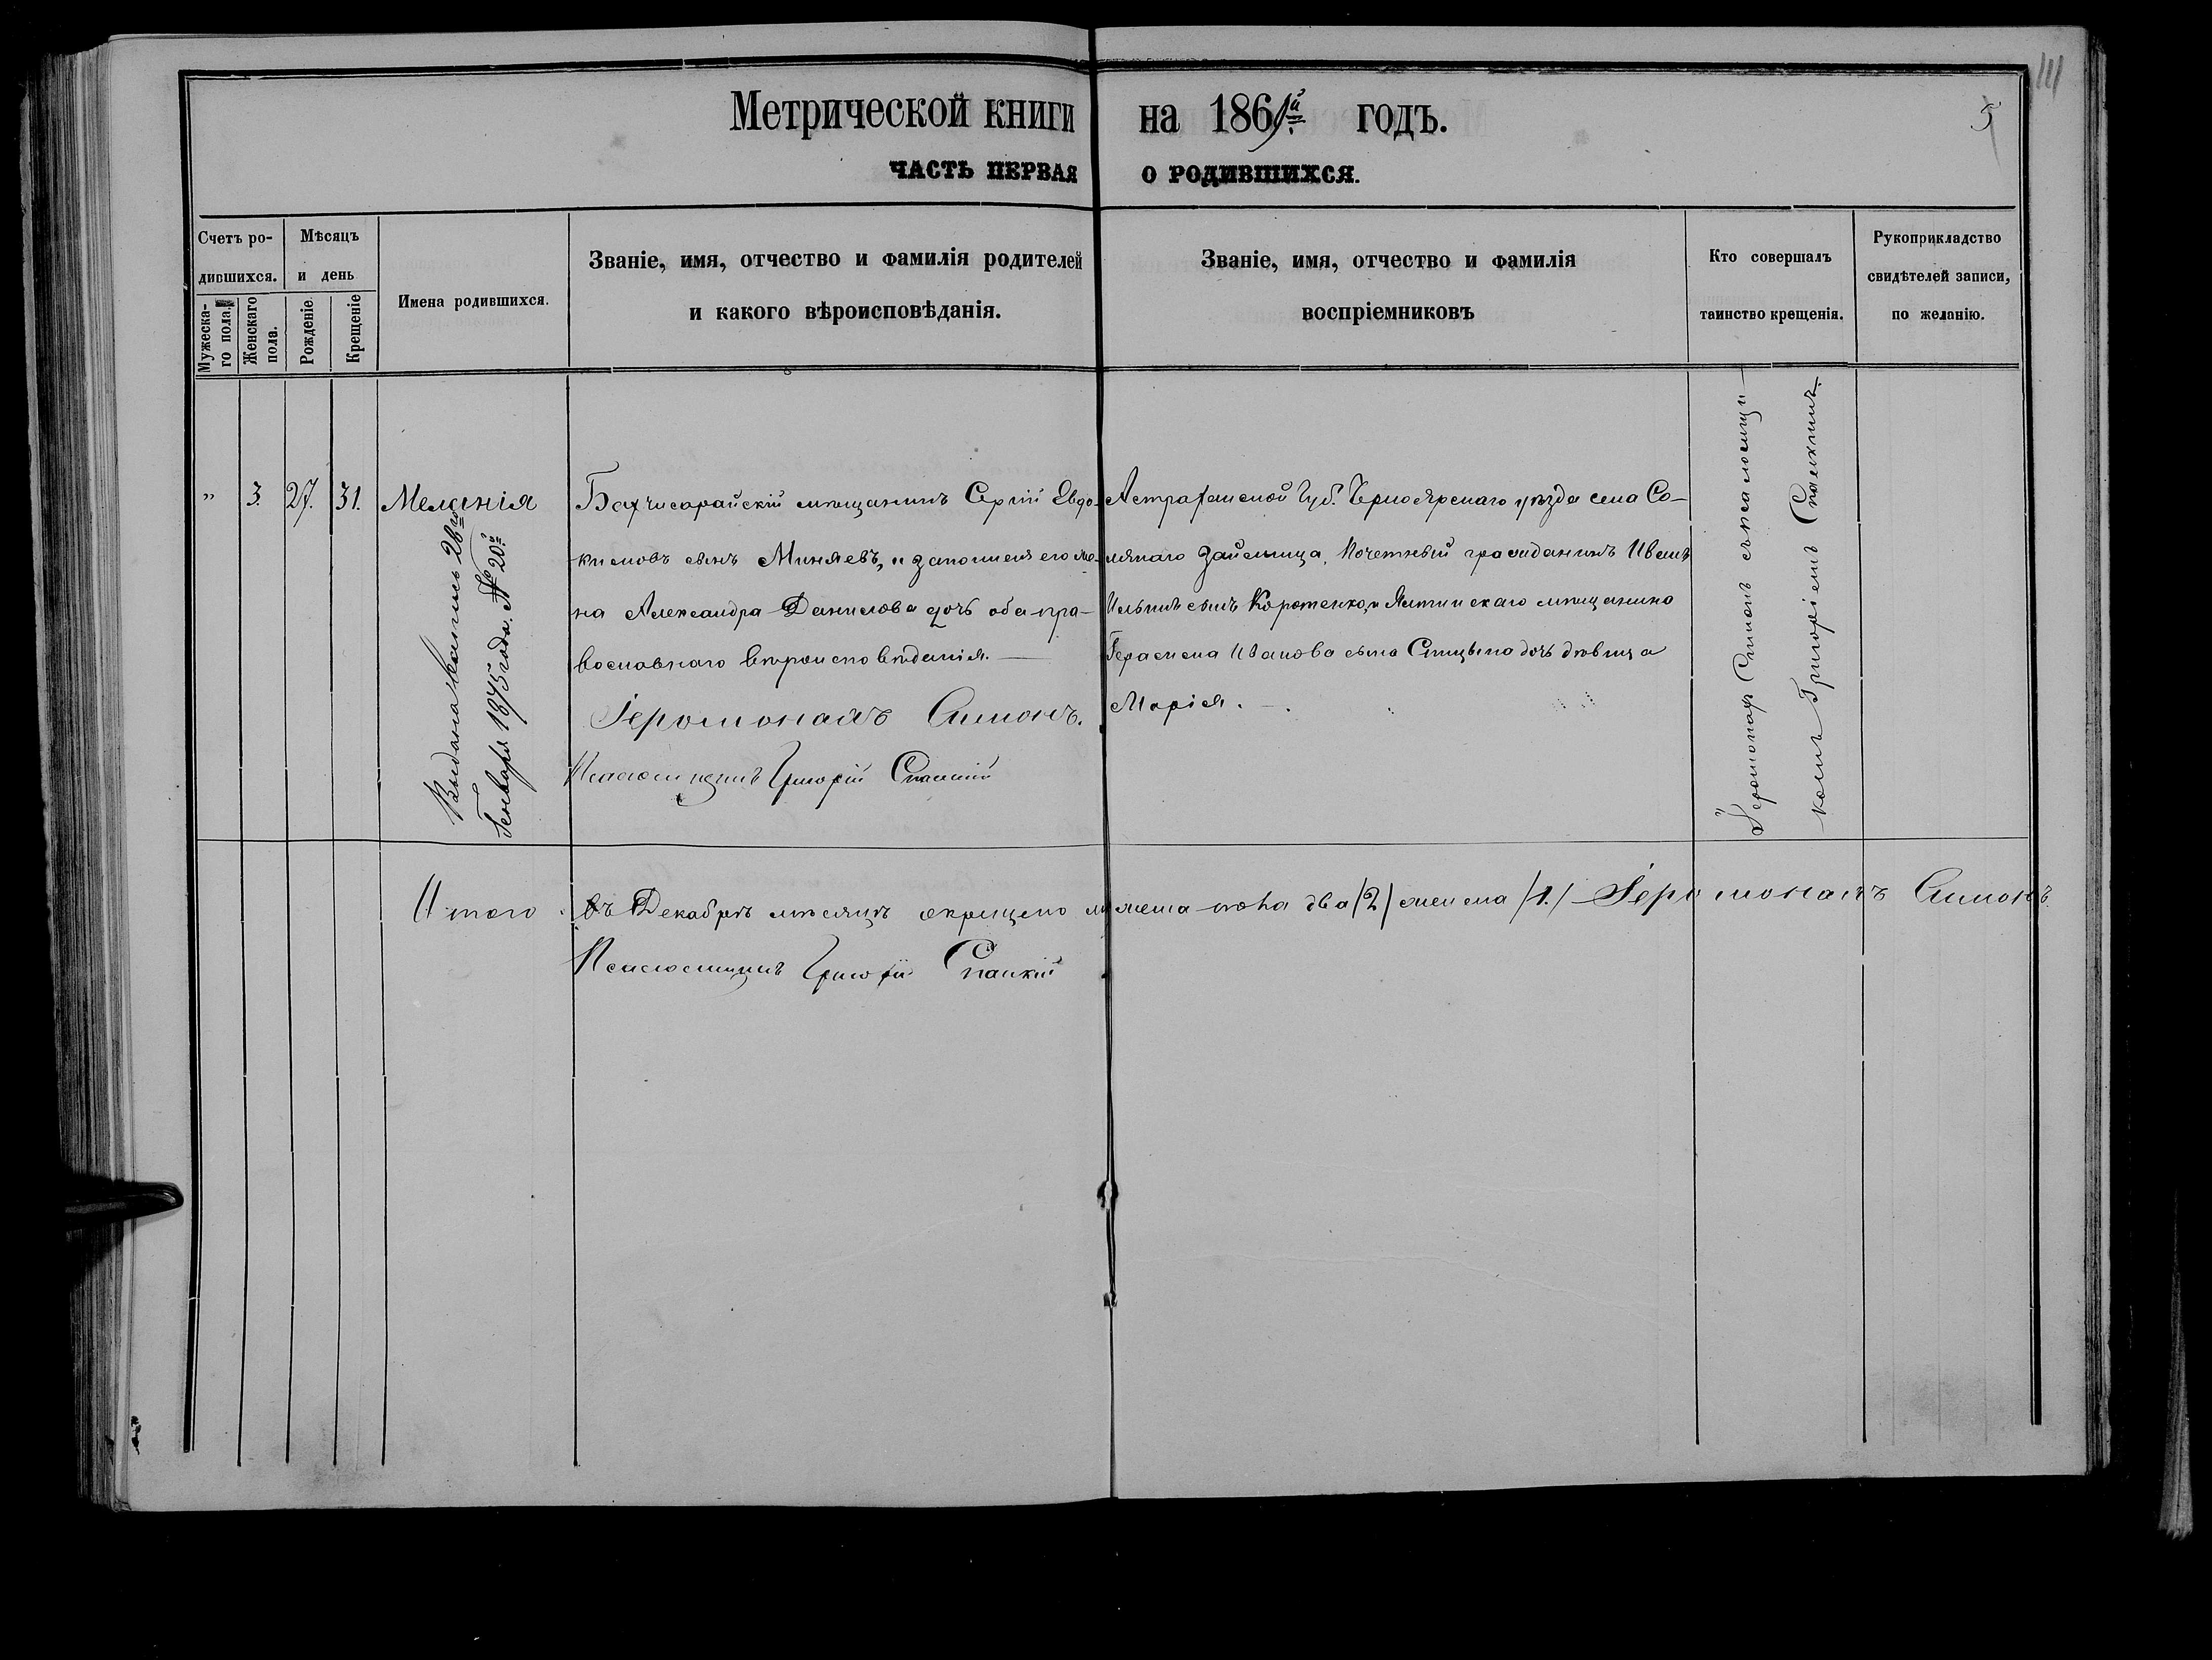 111
5
Метрической книги на 1861й годъ.
ЧАСТЬ ПЕРВАЯ О РОДИВШИХСЯ.
Счетъ ро-
дившихся.
Мужеска-
го пола.
Женскаго
пола.
Мѣсяцъ
и день
Рожденіе.
Крещеніе
Имена родившихся.
Званіе, имя, отчество и фамилія родителей
и какого вѣроисповѣданія.
Званіе, имя, отчество и фамилія
воспріемниковъ
Кто совершалъ
таинство крещенія.
Рукоприкладство
свидѣтелей записи,
по желанію.
" 3. 27. 31. Меланія
Выдана 28го
Генваря 1875 года. № 20й
Бахчисарайскій мѣщанинъ Сергій Евдо-
кимовъ сынъ Миняевъ, и законная его же-
на Александра Данилова дочь оба пра-
вославнаго вѣроисповѣданія.
Іеромонахъ Симонъ.
Псаломщикъ Григорій Спасскій
Астраханской Губ. Черноярскаго уѣзда села Со-
лянаго Займища, Почетный гражданинъ Иванъ
Ильинъ сынъ Коротенко, и Ялтинскаго мѣщанина
Герасима Иванова сына Спицына дочь дѣвица
Марія.
Іеромонахъ Симонъ съ псаломщи-
комъ Григоріемъ Спасскимъ.
Итого въ Декабрѣ мѣсяцѣ окрещено мужеска пола два /2/ женска /1./ Іеромонахъ Симонъ.
Псаломщикъ Григорій Спаскій